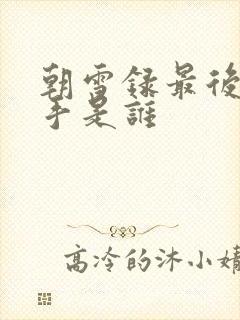 朝雪録最後
手是誰
高冷的沐小婧